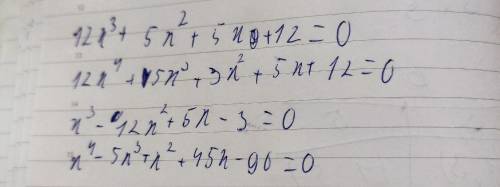 12x³ + 5x² + 5x + 12 = 0
12x⁴ + 15x³ + 3x² + 5x + 12 = 0
x³ - 12x² + 5x - 3 = 0
x⁴ - 5x³ + x² + 45x - 90 = 0